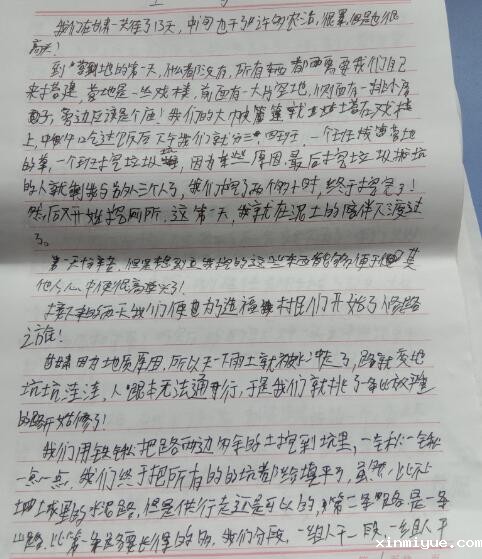 我们在甘肃一共住了13天,中间也干了许许的农活,很累,但是也很
高兴!
到营地的第一天,什么都没有,所有东西都需要我们自己
来搭建,营地是一处戏楼,前面有一大片空地,侧面有一排小房
子,旁边应该是个庙!我们的大帐篷就搭在戏楼
上,中午吃过饭后下午我们就分三
的草,一个班挖垃圾,因为某些原因最后挖垃圾坑
的人就剩我与另外三个人了,我们挖了两个小时,终于挖完了!
然后又开始挖厕所,这第一天,我就在泥土的陪伴下渡过
了。
第一天,但是想到我挖的这些东西能够便于其
他人心中便很高兴了!
接下来的两天我们便为了造福村民们开始了修路
之旅!
甘肃因为地质原因,所以天一下雨土就被冲走了,路就变地
坑坑洼洼,人跟本无法通行,于是我们就挑了一条比较难
的路开始修了!
我们用铁锹把路两边多余的土挖到坑里,一锹一锹
一点一点,我们终于把所有的坑都给填平了,虽然比不
上城里的水泥路,但是供行走还是可以的,第二条路是一条
山路,比第一条路要长得多的,我们分段,一组人干一段,一组人干
xinmiyue.com